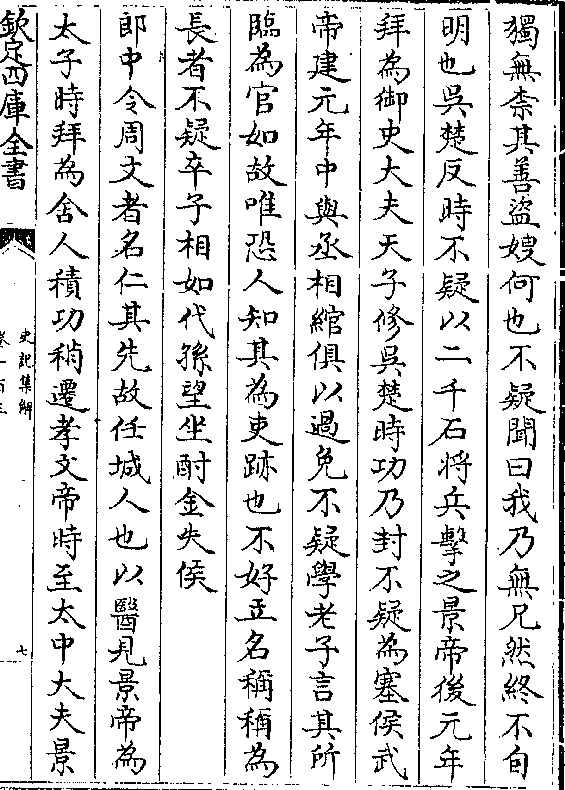 獨無柰其善盜嫂何也不疑聞曰我乃無兄然終不自
明也吳楚反時不疑以二千石将兵擊之景帝後元年
拜為御史大夫天子修吳楚時功乃封不疑為塞侯武
帝建元年中與丞相綰俱以過免不疑學老子言其所
臨為官如故唯恐人知其為吏跡也不好立名稱稱為
長者不疑卒子相如代孫望坐酎金失侯
郎中令周文者名仁其先故任城人也以醫見景帝為
太子時拜為舍人積功稍遷孝文帝時至太中大夫景
欽定四庫全書
史記集解
卷一百三
七